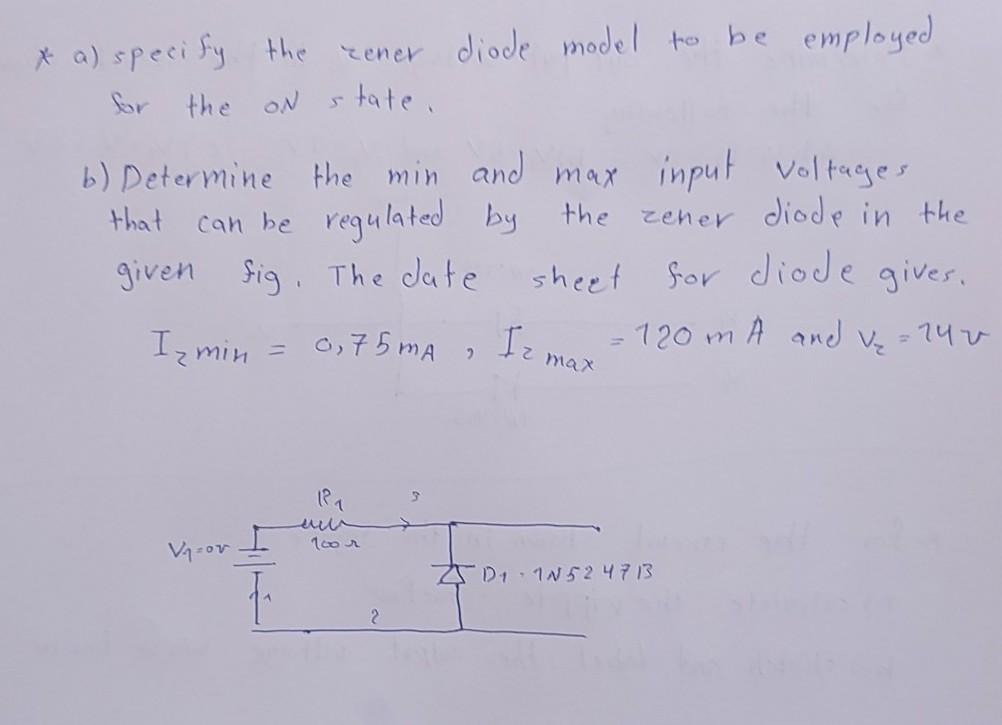 * a) specify the zener diode model to be employed
for the ON state.
b) Determine the min and max input voltages
that can be regulated by the zener diode in the
given fig. The date sheet for diode gives.
Izmin = 0,75mA , Iz max = 120 mA and Vz = 14v
R1
3
V1=0v
100Ω
D1 - 1N5247B
1
2